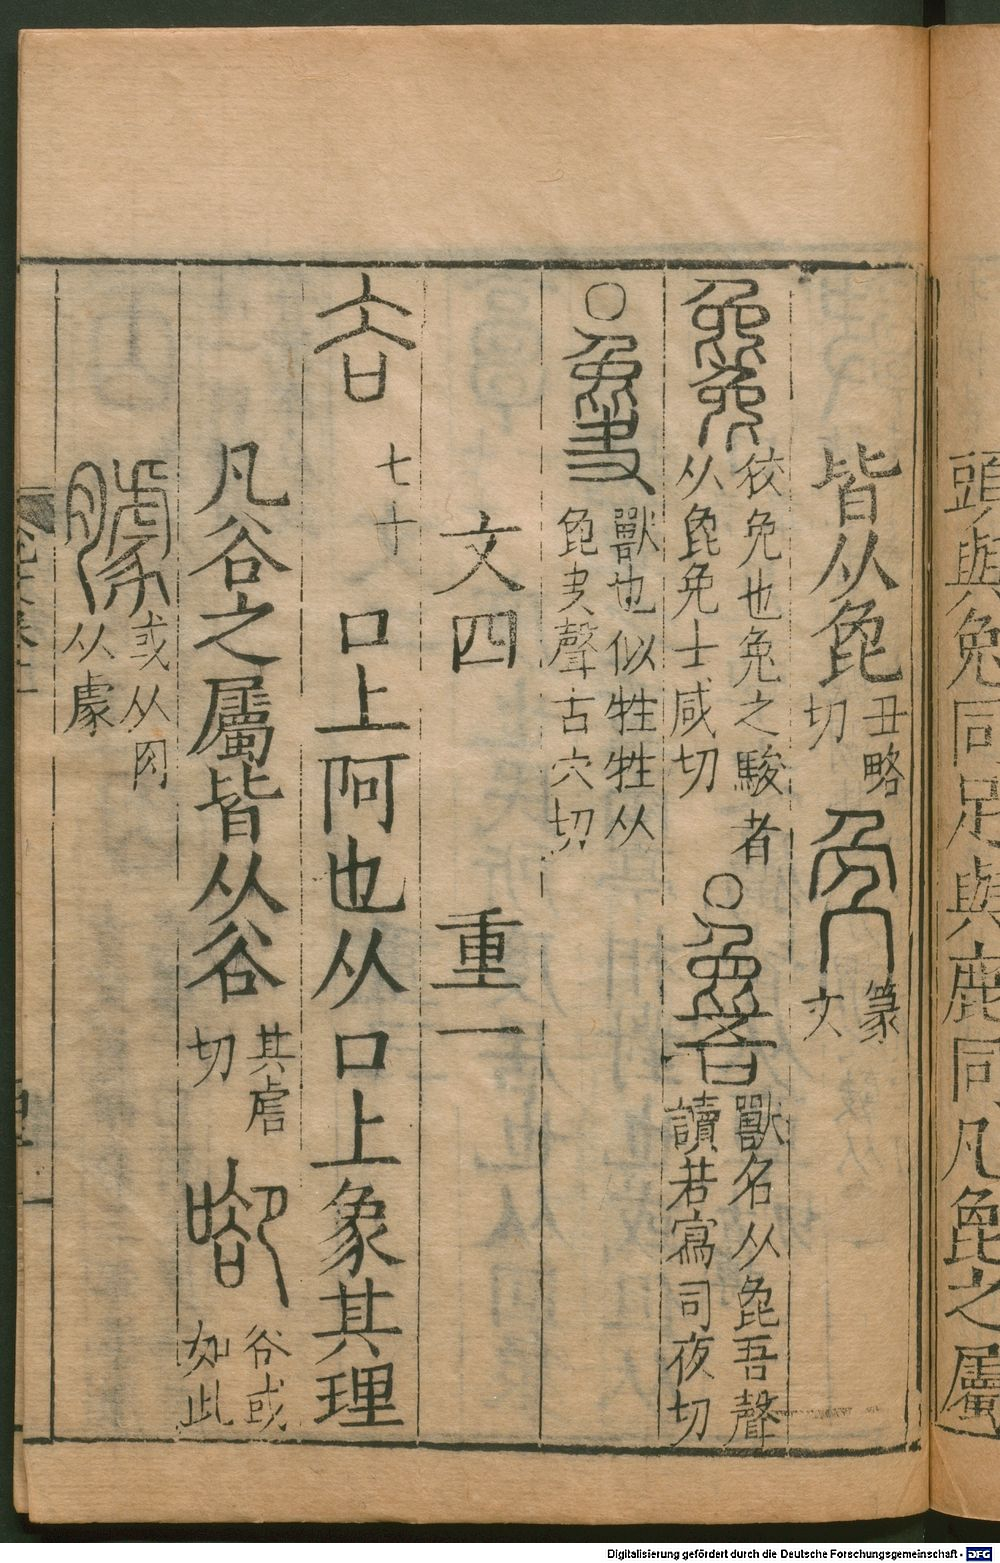 頭與兔同足與鹿同凡㲋之屬
皆从㲋丑略切 篆文
毚 狡免也兔之駿者从㲋免士咸切 ○ 獸名从㲋吾聲讀若寫司夜切
○ 獸也似牲牲从㲋夬聲古穴切
文四 重一
谷 七十 口上阿也从口上象其理
凡谷之屬皆从谷其虐切 谷或如此
臄 或从肉从豦